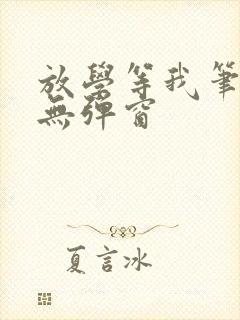 放學等我筆
無彈窗
夏言冰